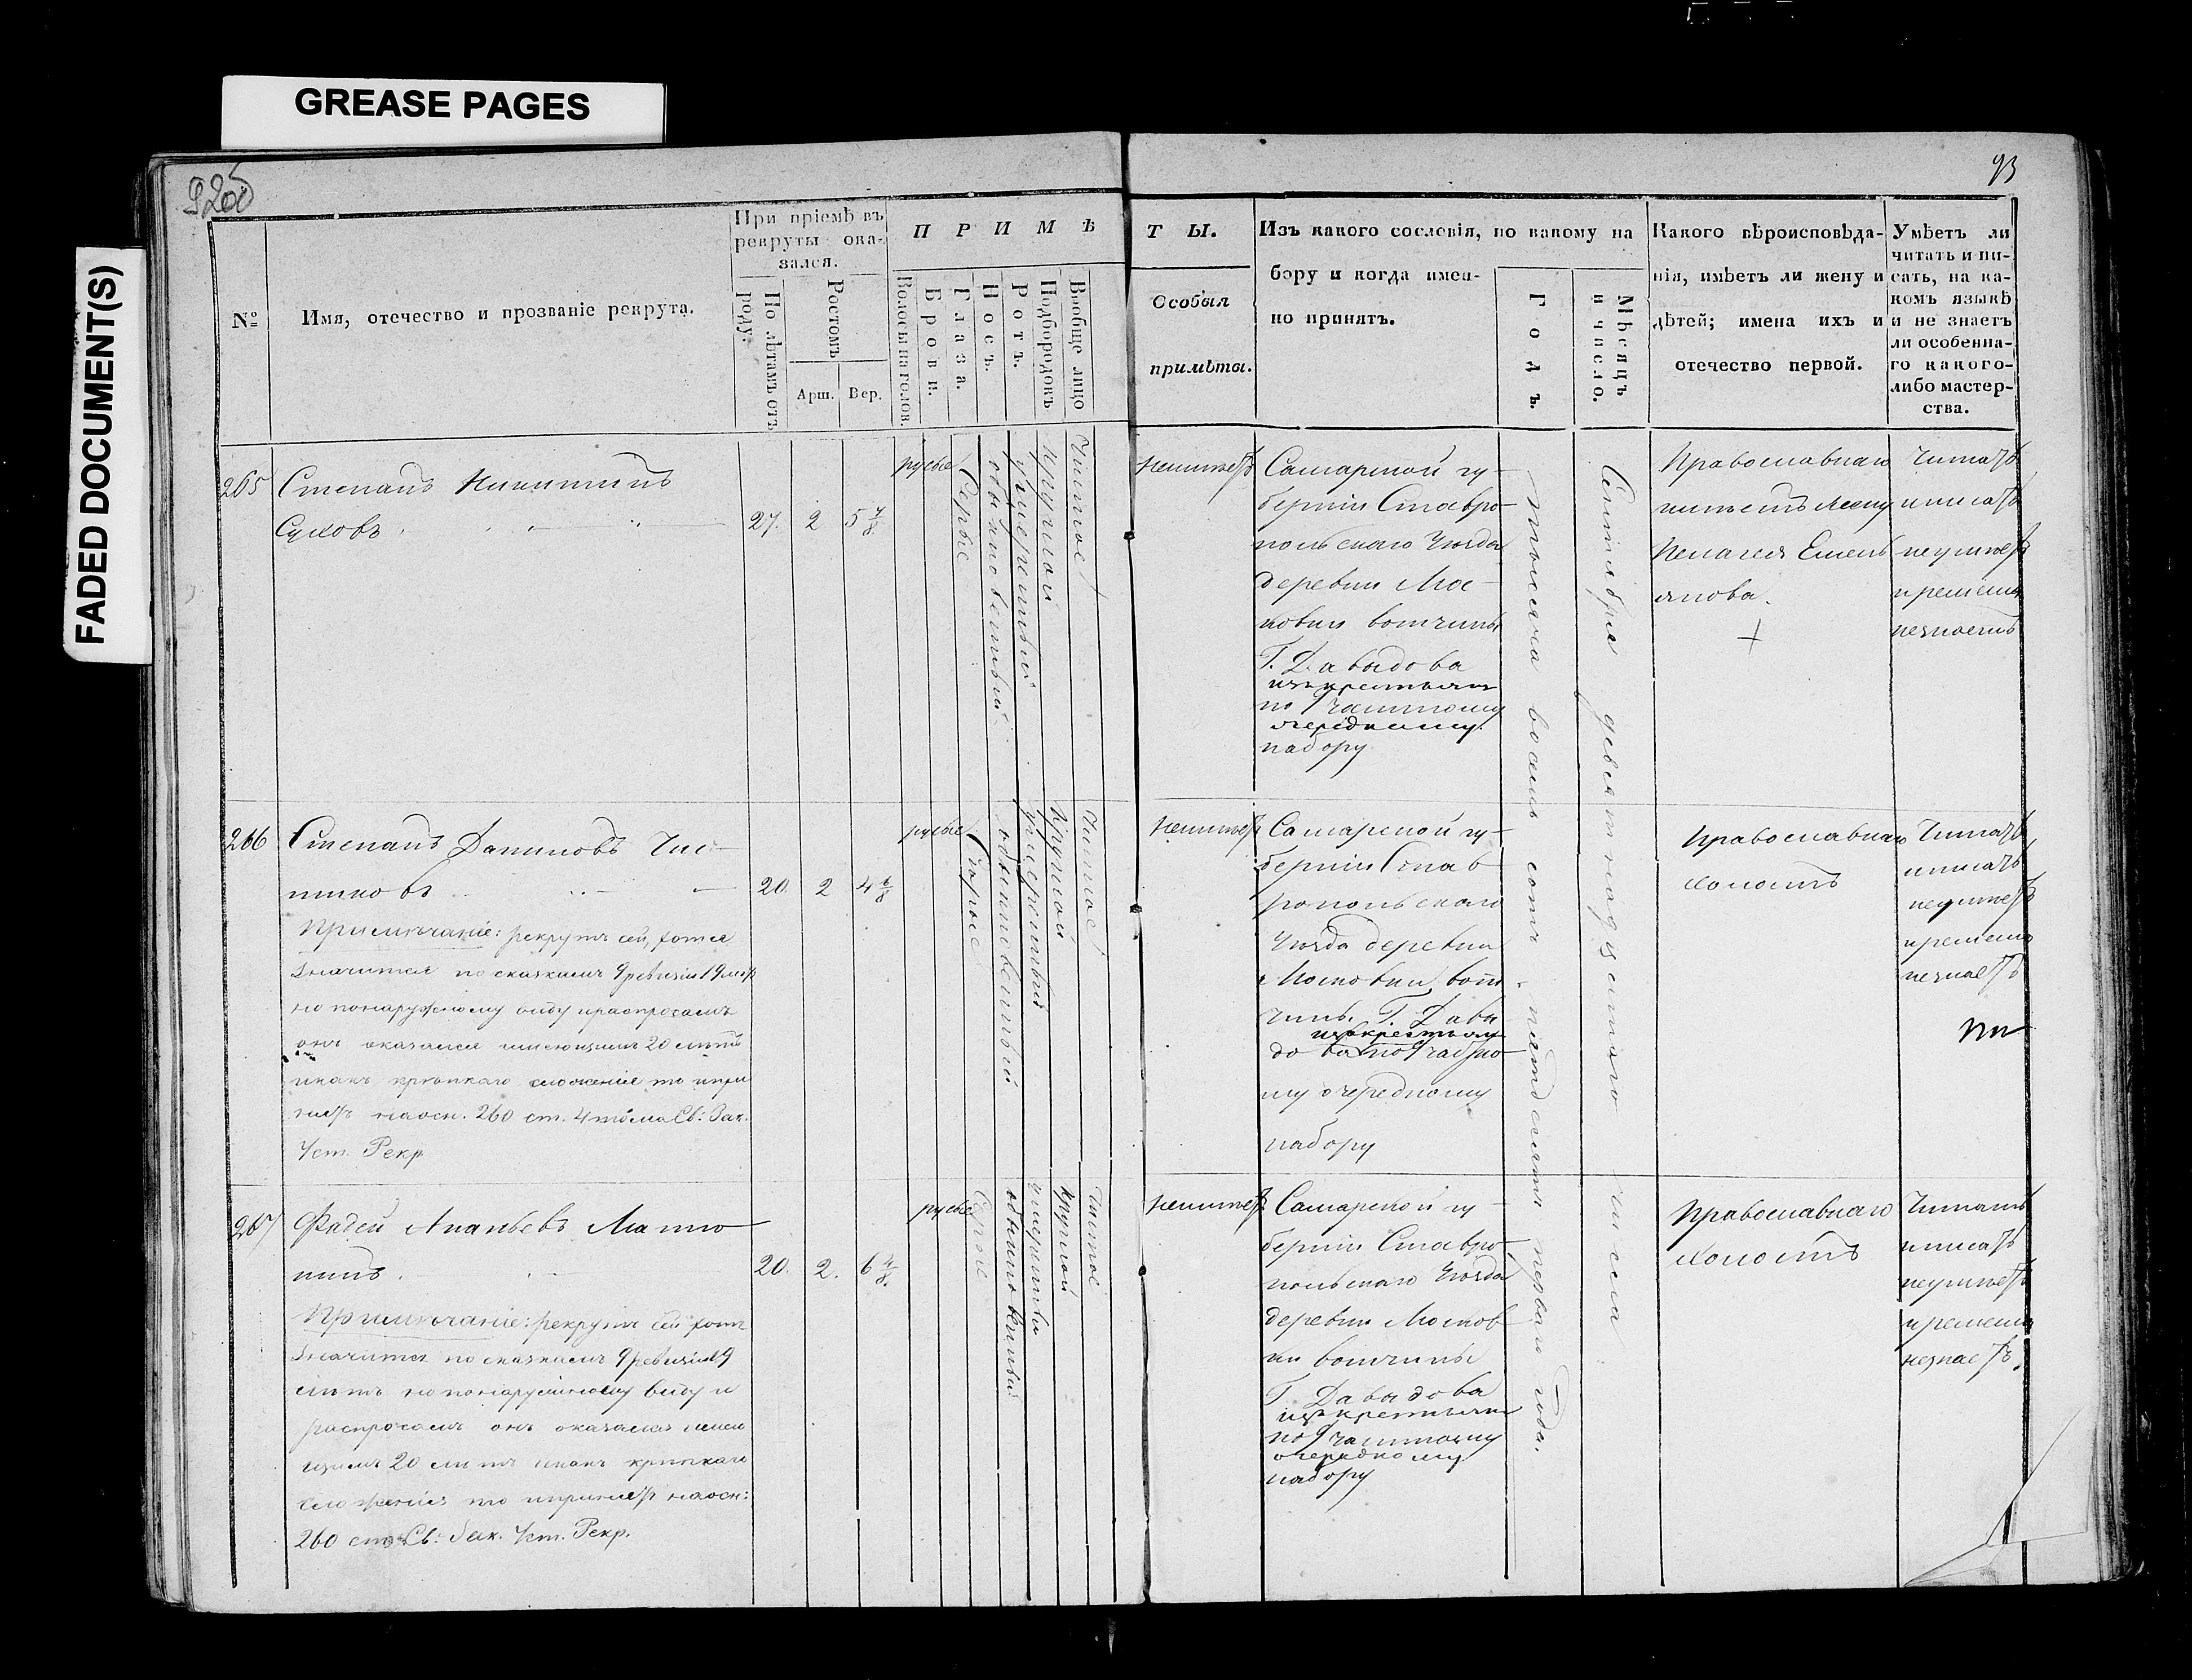 GREASE PAGES
FADED DOCUMENT(S)
93
№
Имя, отечество и прозваніе рекрута.
При пріемѣ въ
рекруты ока-
зался.
По лѣтамъ отъ
роду.
Ростомъ
Арш.
Вер.
П Р И М Ѣ
Волосы на голов.
Брови.
Глаза.
Носъ.
Ротъ.
Подбородокъ
Вообще лицо
Т Ы.
Особыя
примѣты.
Изъ какого сословія, по какому на
бору и когда имен-
но принятъ.
Годъ.
Мѣсяцъ
и число.
Какого вѣроисповѣда-
нія, имѣетъ ли жену и
дѣтей; имена ихъ и
отечество первой.
Умѣетъ ли
читать и пи-
сать, на ка-
комъ языкѣ
и не знаетъ
ли особенна-
го какого-
либо мастер-
ства.
265
Степанъ Никитинъ
Суховъ
27.
2
5 7/8
русые
Серые
обыкновенный
умеренный
Круглой
Чистое
неимеетъ
Самарской гу-
берніи Ставро-
польскаго Уѣзда
деревни Мос-
ковки вотчины
Г. Давыдова
изъ крестьянъ
по 9 частному
очередному
набору
тысяча восемь сотъ пятдесятъ перваго года.
Сентября девятнадцатаго числа
Православнаго
имѣетъ жену
Пелагея Емель
янова.
Читать
и писать
неумѣетъ
и ремесла
незнаетъ
266
Степанъ Даниловъ Чис-
тиковъ
20.
2
4 6/8
Примѣчаніе: рекрутъ сей, хотя
значится по сказкамъ 9 ревизіи 19 летъ
но понаружному виду и распросамъ
онъ оказался имеющимъ 20 летъ
и какъ крѣпкаго сложенія то и при
нятъ наосн. 260 ст. 4 тома Св: Зак.
Уст. Рекр
русые
Серые
обыкновенный
умеренный
Круглой
Чистое
неимеетъ
Самарской гу-
берніи Став
ропольскаго
Уѣзда деревни
Московки вот-
чины Г. Давы
изъ крестьян
дова по 9 частно
му очередному
набору
Православнаго
холостъ
Читать
и писать
неумѣетъ
и ремесла
незнаетъ
267
Фадей Ананьевъ Матю
нинъ.
20.
2.
6 4/8.
Примѣчаніе: рекрутъ сей хотя
значится по сказкамъ 9 ревизіи 19
летъ но понаружному виду и
распросамъ онъ оказался имею
щимъ 20 летъ и какъ крѣпкаго
сложенія то и принятъ наосн:
260 ст. Св: Зак. Уст. Рекр.
русые
Серые
обыкновенный
умеренный
Круглой
Чистое
неимеетъ
Самарской гу-
берніи Ставро-
польскаго Уѣзда
деревни Москов
ки вотчины
Г. Давыдова
изъ крестьянъ
по 9 частному
очередному
набору
Православнаго
холостъ
Читать
и писать
неумѣетъ
и ремесла
незнаетъ.